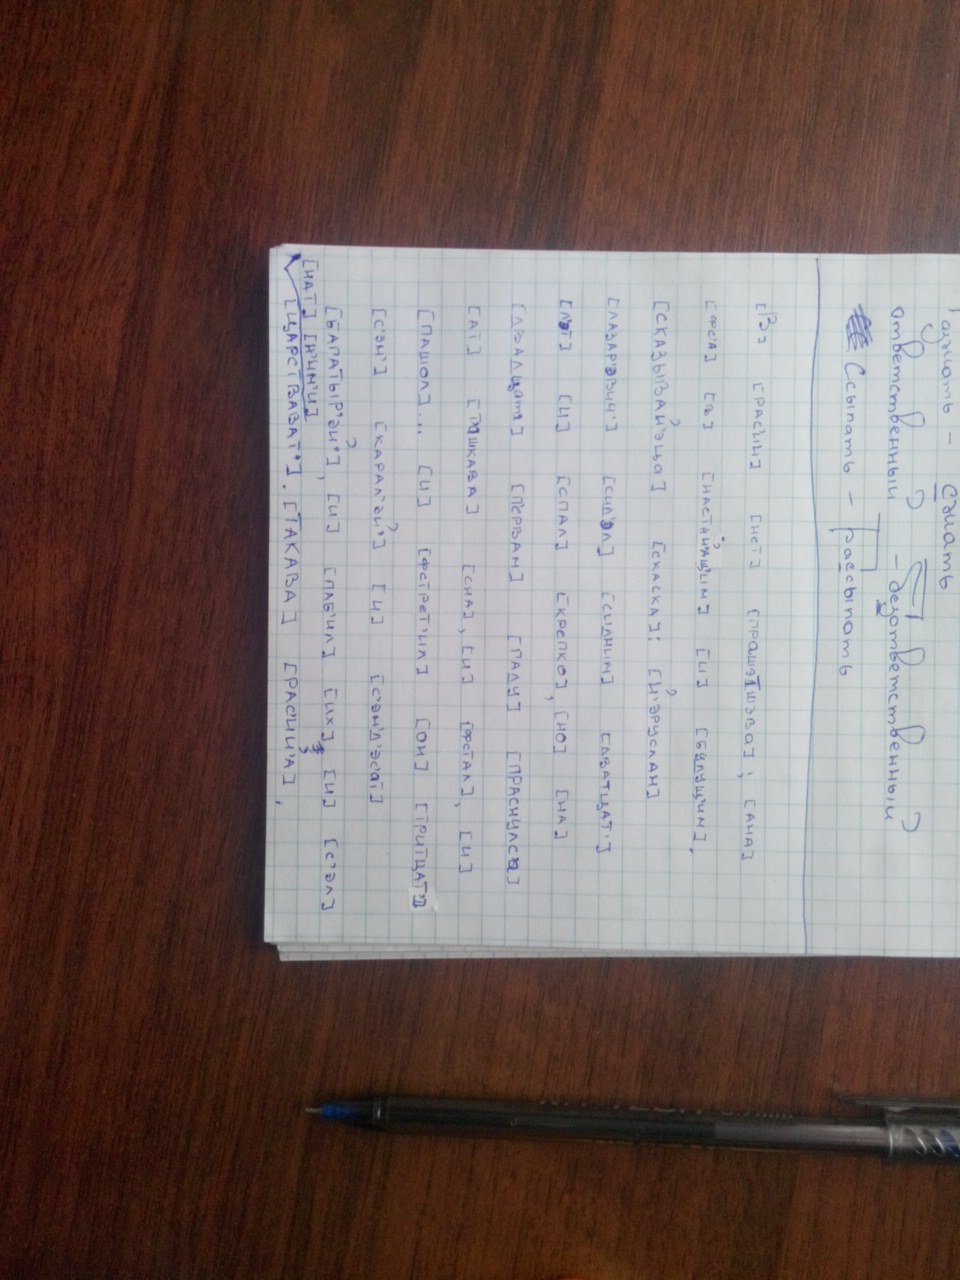 ать - сжать
ответственный - безответственный
Ссыпать - рассыпать
[В] [РАС'ИИ] [НЕТ] [ПРАШЭТШЭВА], [АНА]
[ФС'А] [В] [НАСТАЙ'АЩ'ИМ] [И] [БУДУЩ'ИМ],
[СКАЗЫВАЙ'ЭЦА] [СКАСКА]: [Й'ЭРУСЛАН]
[ЛАЗАР'ЭВИЧ'] [СИД'ЭЛ] [СИДНИМ] [ДВАТЦАТ']
[Л'ЭТ] [И] [СПАЛ] [КРЕПКО], [НО] [НА]
[ДВАДЦАТ'] [ПЕРВАМ] [ГАДУ] [ПРАСНУЛСЯ]
[АТ] [ТЯШКАВА] [СНА], [И] [ФСТАЛ], [И]
[ПАШОЛ]... [И] [ФСТРЕТ'ИЛ] [ОН] [ТРИТЦАТ']
[С'ЭМ'] [КАРАЛ'ЭЙ'] [И] [С'ЭМ'Д'ЭСАТ]
[БАГАТЫР'ЭЙ'], [И] [ПАБ'ИЛ] [ИХ], [И] [С'ЭЛ]
[НАТ] [Н'ИМ'И]
[ЦАРСТВАВАТ']. [ТАКАВА] [РАС'ИЙ'А],